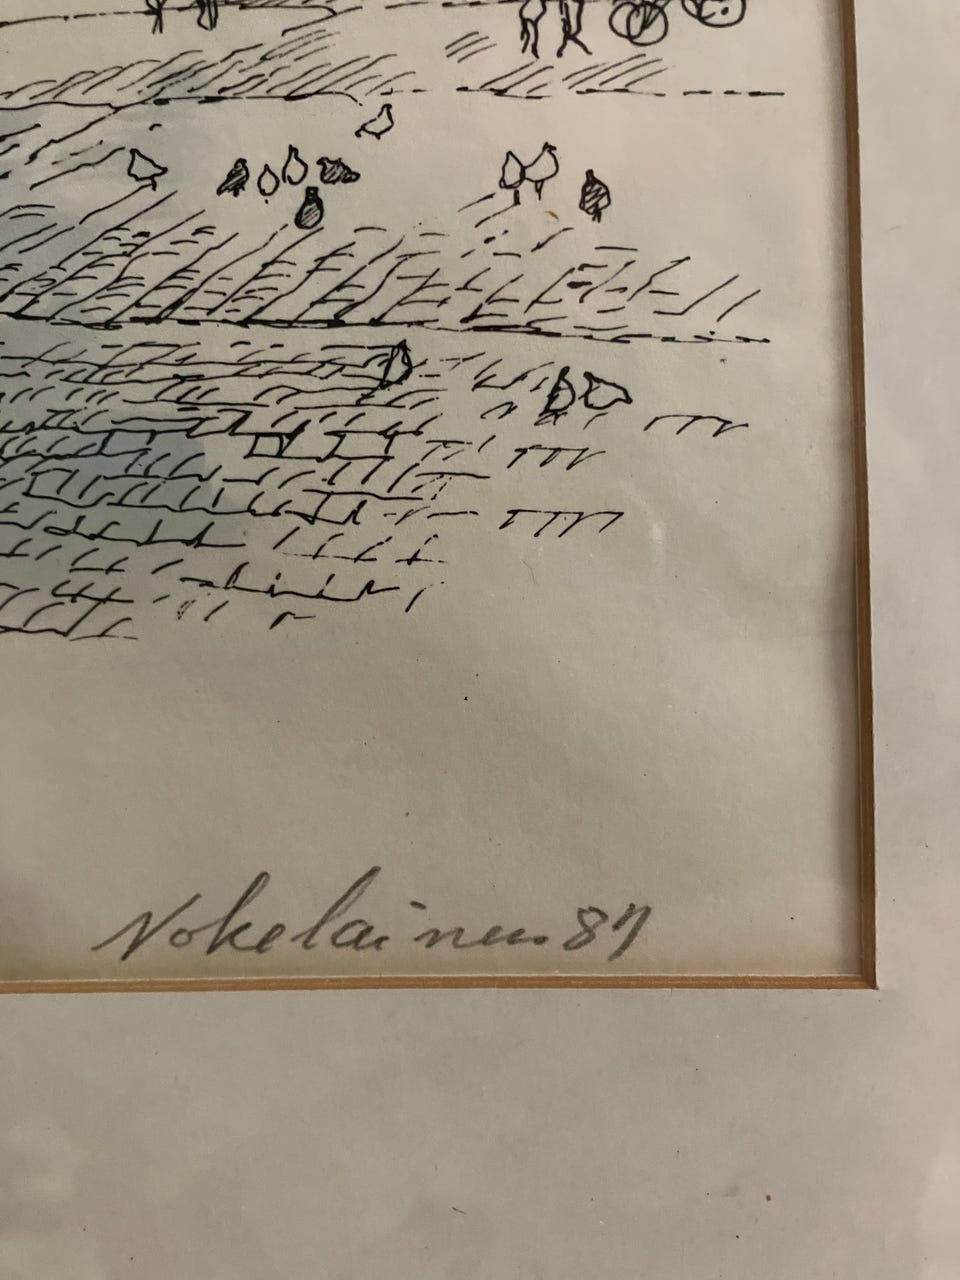 Nokelainen 87